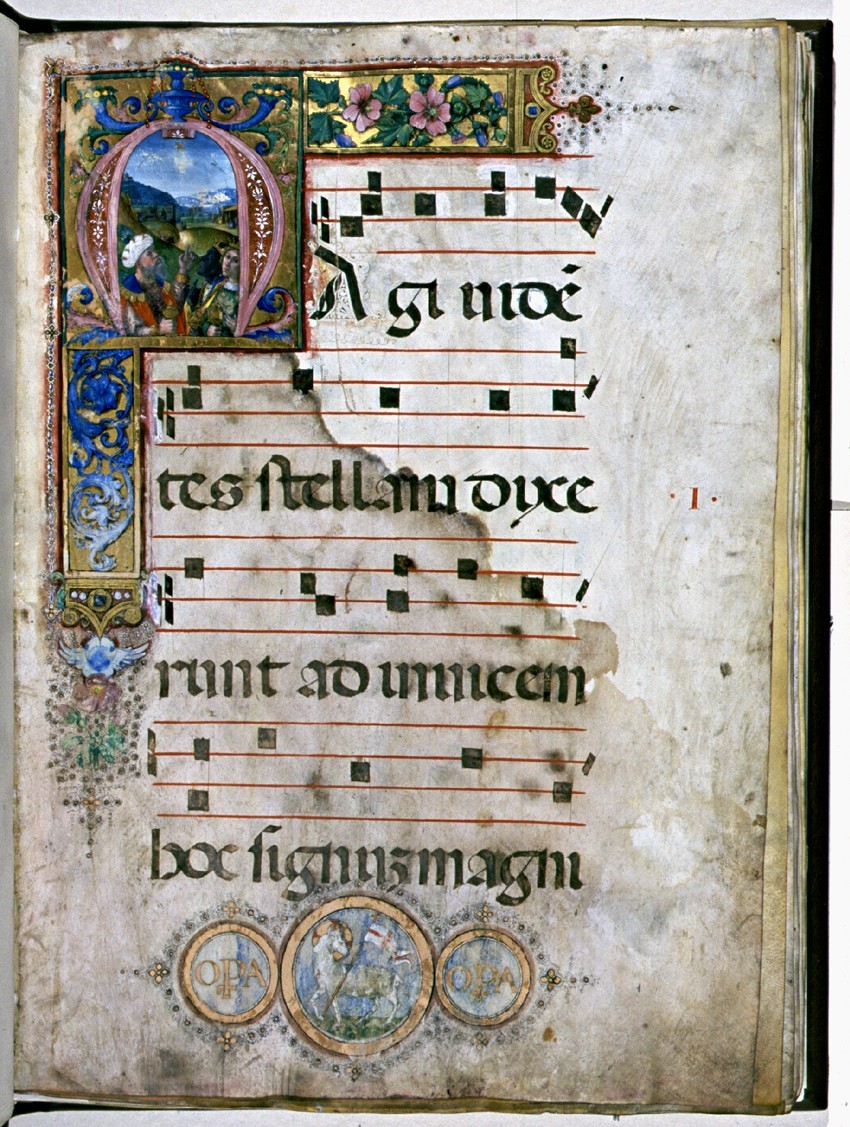 MAgi uidē
tes stellam dixe
·I·
runt ad inuicem
hoc signuʒ magni
OPA OPA